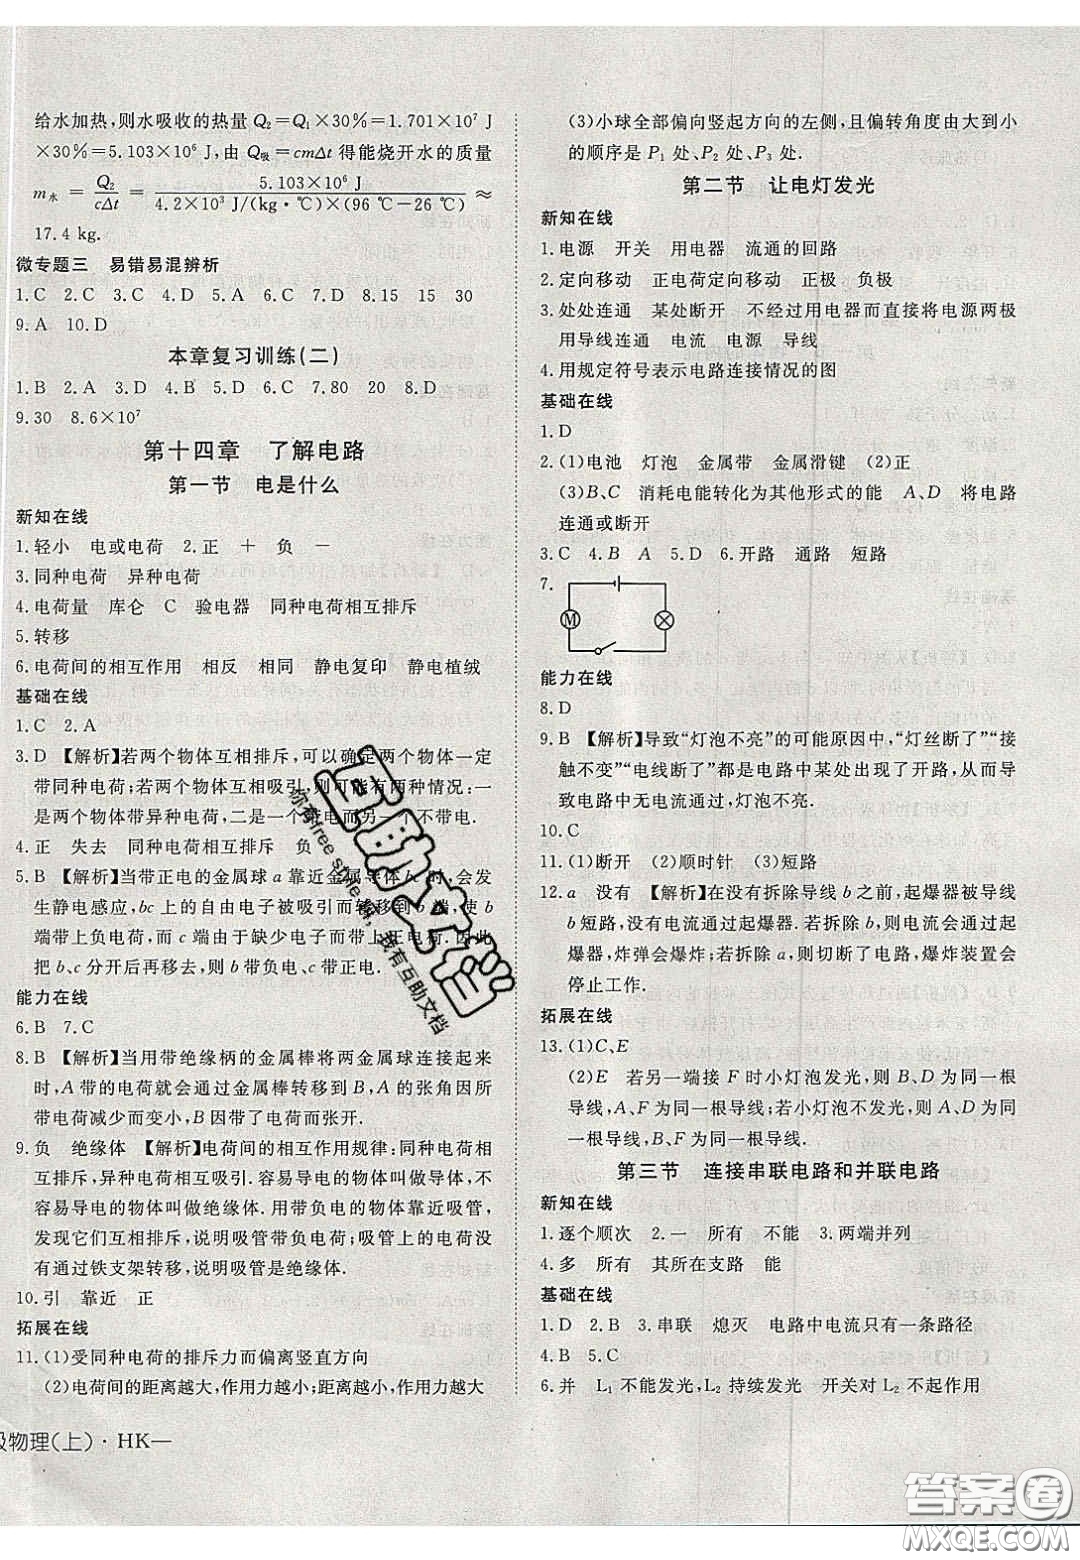 给水加热,则水吸收的热量 Q₂=Q₁×30%=1.701×10⁷ J
×30%=5.103×10⁶ J,由 Q吸=cmΔt 得能烧开水的质量
m水 = Q₂/cΔt = 5.103×10⁶ J/4.2×10³ J/(kg·℃)×(96 ℃-26 ℃) ≈
17.4 kg.
微专题三 易错易混辨析
1.C 2.C 3.C 4.D 5.A 6.C 7.D 8.15 15 30
9.A 10.D
本章复习训练(二)
1.B 2.A 3.D 4.B 5.D 6.C 7.80 20 8.D
9.30 8.6×10⁷
第十四章 了解电路
第一节 电是什么
新知在线
1.轻小 电或电荷 2.正 + 负 -
3.同种电荷 异种电荷
4.电荷量 库仑 C 验电器 同种电荷相互排斥
5.转移
6.电荷间的相互作用 相反 相同 静电复印 静电植绒
基础在线
1.C 2.A
3.D 【解析】若两个物体互相排斥,可以确定两个物体一定
带同种电荷;若两个物体互相吸引,则可能有两种情况:一
是两个物体带异种电荷,二是一个带电而另一个不带电.
4.正 失去 同种电荷相互排斥 负
5.B 【解析】当带正电的金属球 a 靠近金属导体 bc 时,会发
生静电感应,bc 上的自由电子被吸引而转移到 b 端,使 b
端带上负电荷,而 c 端由于缺少电子而带上正电荷.因此
把 b、c 分开后再移去,则 b 带负电、c 带正电.
能力在线
6.B 7.C
8.B 【解析】当用带绝缘柄的金属棒将两金属球连接起来
时,A 带的电荷就会通过金属棒转移到 B,A 的张角因所
带电荷减少而变小,B 因带了电荷而张开.
9.负 绝缘体 【解析】电荷间的相互作用规律:同种电荷相
互排斥,异种电荷相互吸引.容易导电的物体叫做导体,不
容易导电的物体叫做绝缘体.用带负电的物体靠近吸管,
发现它们互相排斥,说明吸管带负电荷;吸管上的电荷没
有通过铁支架转移,说明吸管是绝缘体.
10.引 靠近 正
拓展在线
11.(1)受同种电荷的排斥力而偏离竖直方向
(2)电荷间的距离越大,作用力越小;距离越小,作用力越大
级物理(上)·HK—
(3)小球全部偏向竖起方向的左侧,且偏转角度由大到小
的顺序是 P₁ 处、P₂ 处、P₃ 处.
第二节 让电灯发光
新知在线
1.电源 开关 用电器 流通的回路
2.定向移动 正电荷定向移动 正极 负极
3.处处连通 某处断开 不经过用电器而直接将电源两极
用导线连通 电流 电源 导线
4.用规定符号表示电路连接情况的图
基础在线
1.D
2.(1)电池 灯泡 金属带 金属滑键 (2)正
(3)B、C 消耗电能转化为其他形式的能 A、D 将电路
连通或断开
3.C 4.B A 5.D 6.开路 通路 短路
7.
M
能力在线
8.D
9.B 【解析】导致“灯泡不亮”的可能原因中,“灯丝断了”“接
触不变”“电线断了”都是电路中某处出现了开路,从而导
致电路中无电流通过,灯泡不亮.
10.C
11.(1)断开 (2)顺时针 (3)短路
12.a 没有 【解析】在没有拆除导线 b 之前,起爆器被导线
b 短路,没有电流通过起爆器.若拆除 b,则电流会通过起
爆器,炸弹会爆炸;若拆除 a,则切断了电路,爆炸装置会
停止工作.
拓展在线
13.(1)C、E
(2)E 若另一端接 F 时小灯泡发光,则 A、F 为同一根
导线,A、B 为同一根导线;若小灯泡不发光,则 A、D 为同
一根导线,B、F 为同一根导线.
第三节 连接串联电路和并联电路
新知在线
1.逐个顺次 2.一 所有 不能 3.两端并列
4.多 所有 其所在支路 能
基础在线
1.D 2.B 3.串联 熄灭 电路中电流只有一条路径
4.B 5.C
6.并 L₁ 不能发光,L₂ 持续发光 开关对 L₂ 不起作用
答案卷
MXQE.COM